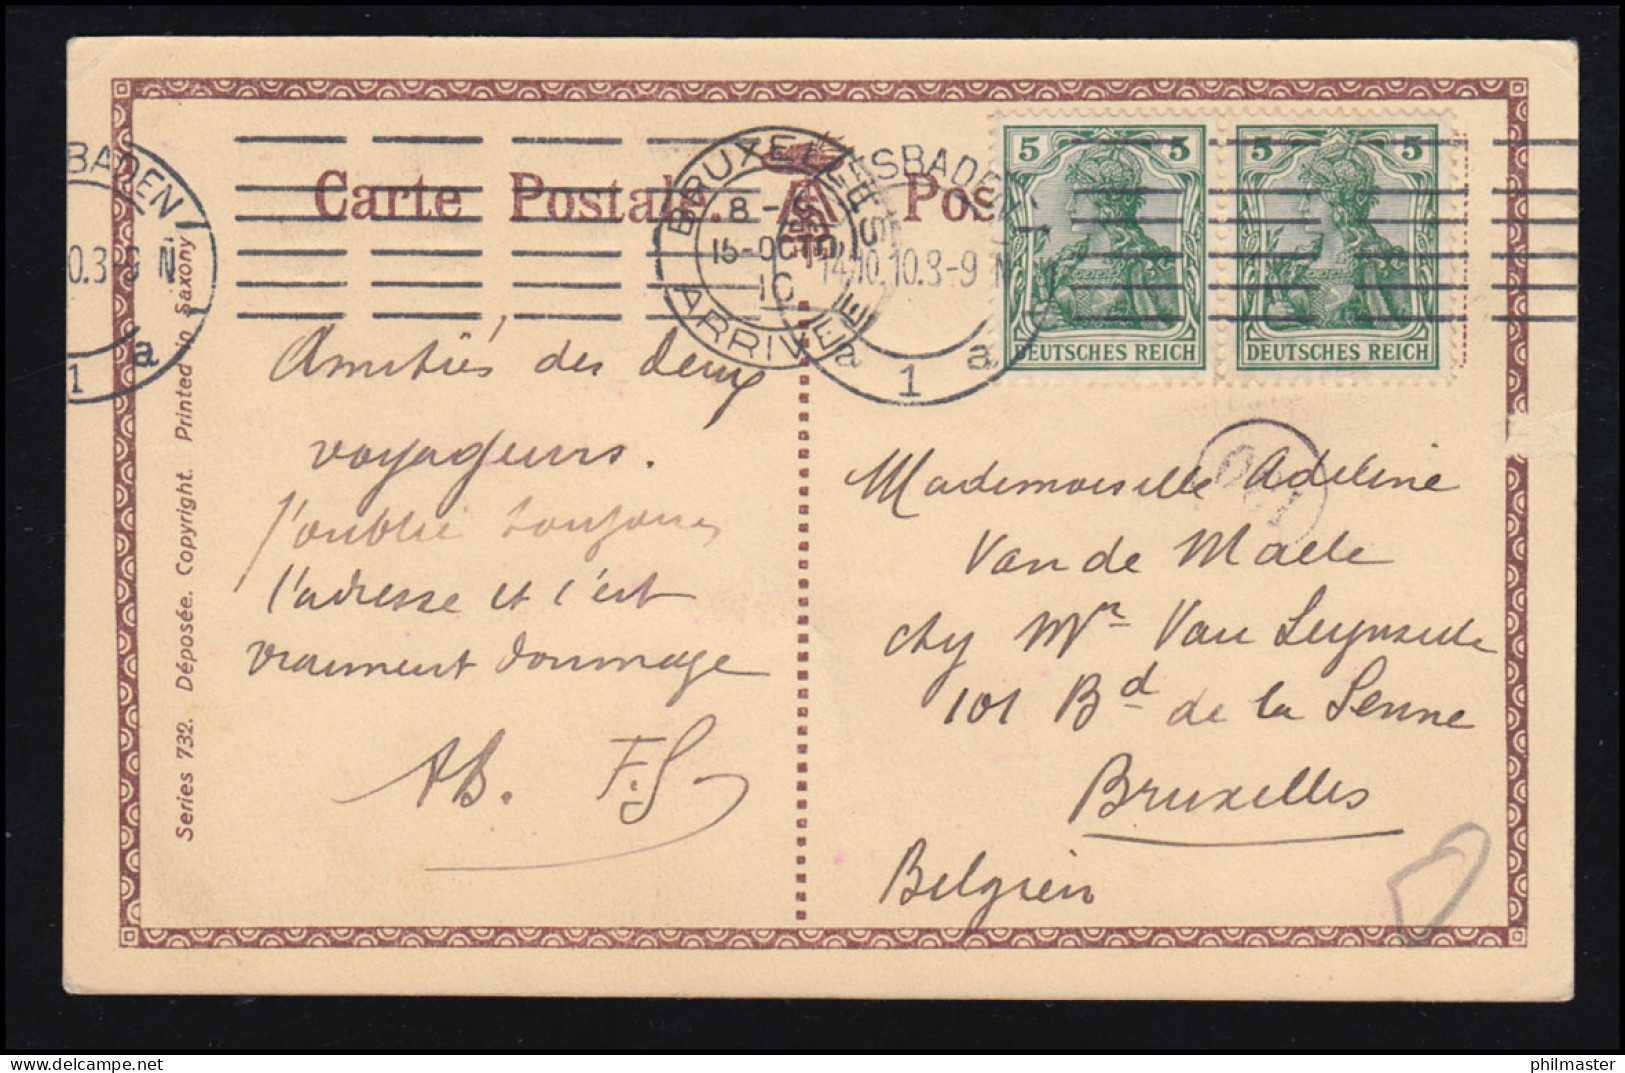 Carte Postale.
Pos
BADEN
0.3-9 N
1 a
BRUXELLES
8 -
15-OCT
10
ARRIVEE
ESBADEN
14.10.10.8-9 N
a 1 a
5 5
DEUTSCHES REICH
5 5
DEUTSCHES REICH
Series 732. Déposée. Copyright. Printed in Saxony
Amitiés des deux
voyageurs.
J'oublie toujours
l'adresse et c'est
vraiment dommage
AB. F.S.
Mademoiselle Adeline
Van de Maele
chy Mr Van
101 Bd de la Senne
Bruxelles
Belgien
philmaster